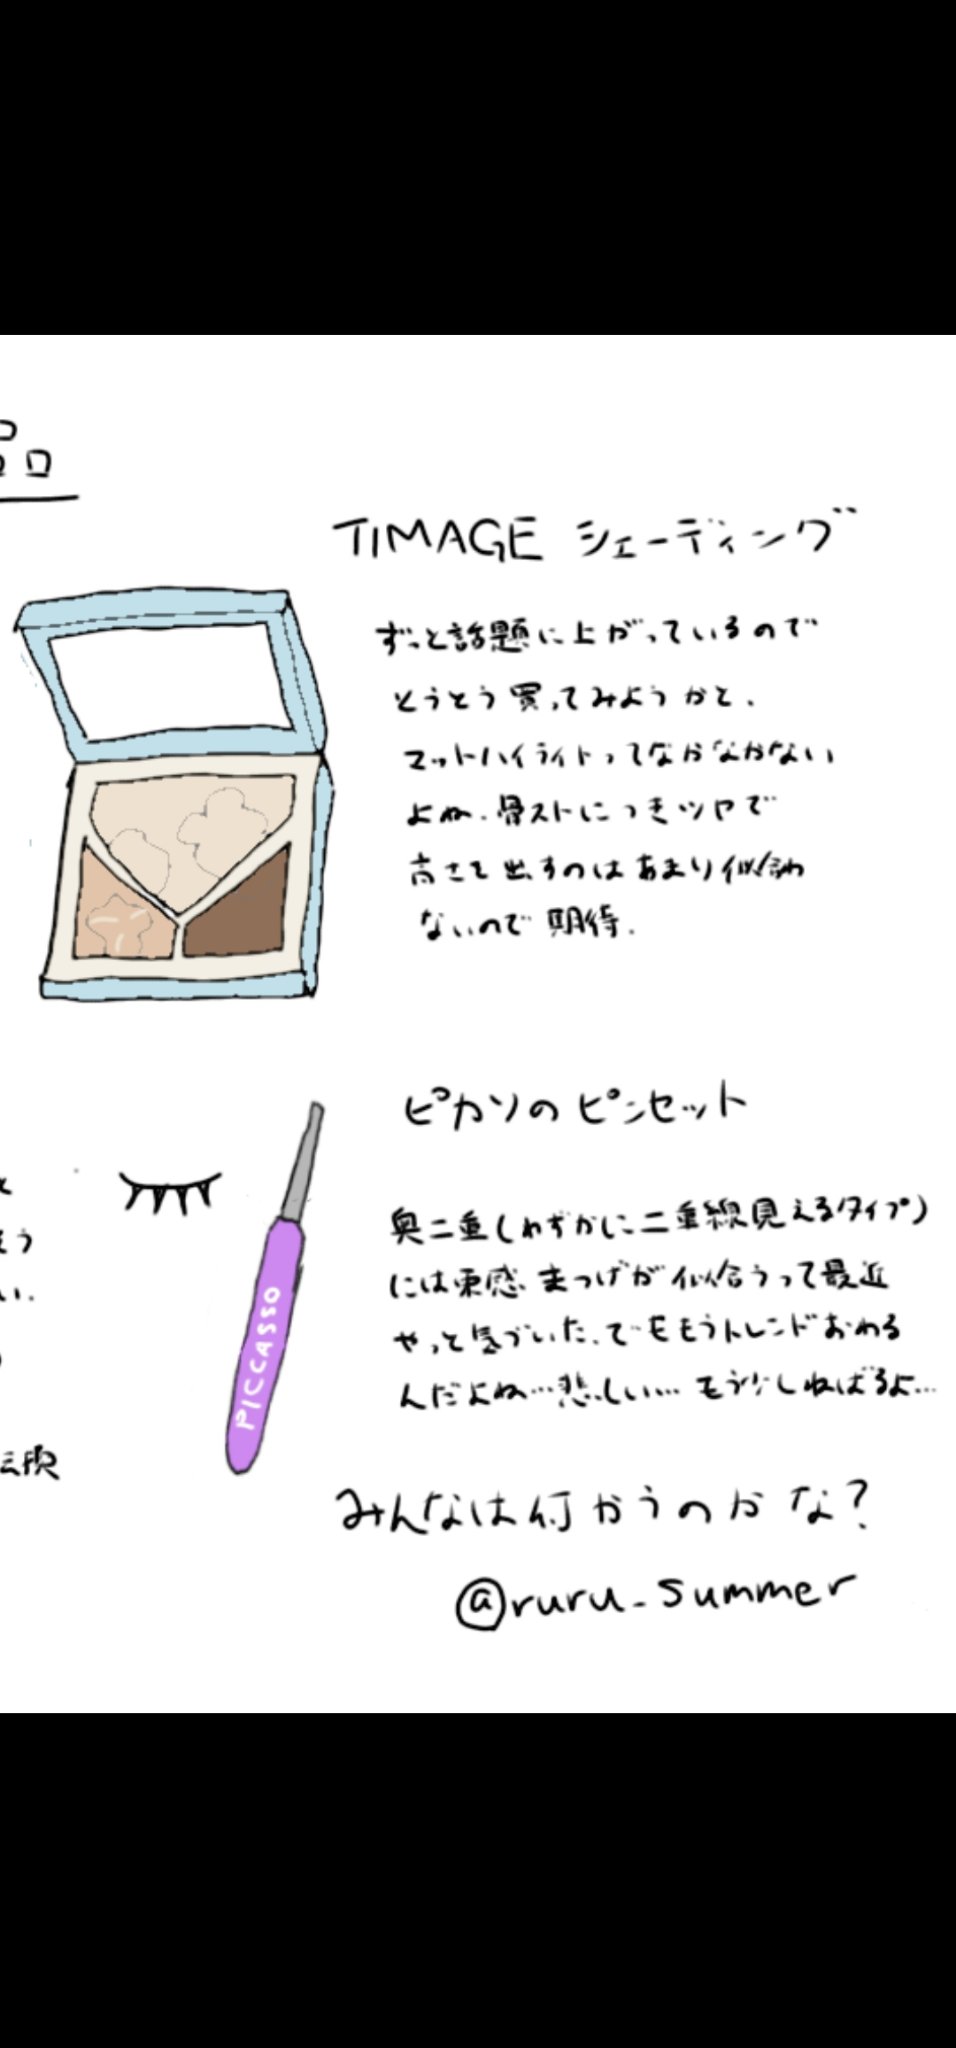 品
TIMAGE シェーディング
ずっと話題に上がっているので
とうとう買ってみようかと、
マットハイライトってなかなかない
よね、骨ストにつきツヤで
高さを出すのはあまり似合わ
ないので期待.
ピカソのピンセット
奥二重(わずかに二重線見えるタイプ)
には束感まつげが似合うって最近
やっと気づいた、でももうトレンドおわる
んだよね…悲しい… もう少しねばるよ…
PICCASSO
と
う
い.
みんなは何かうのかな?
@ruru_summer